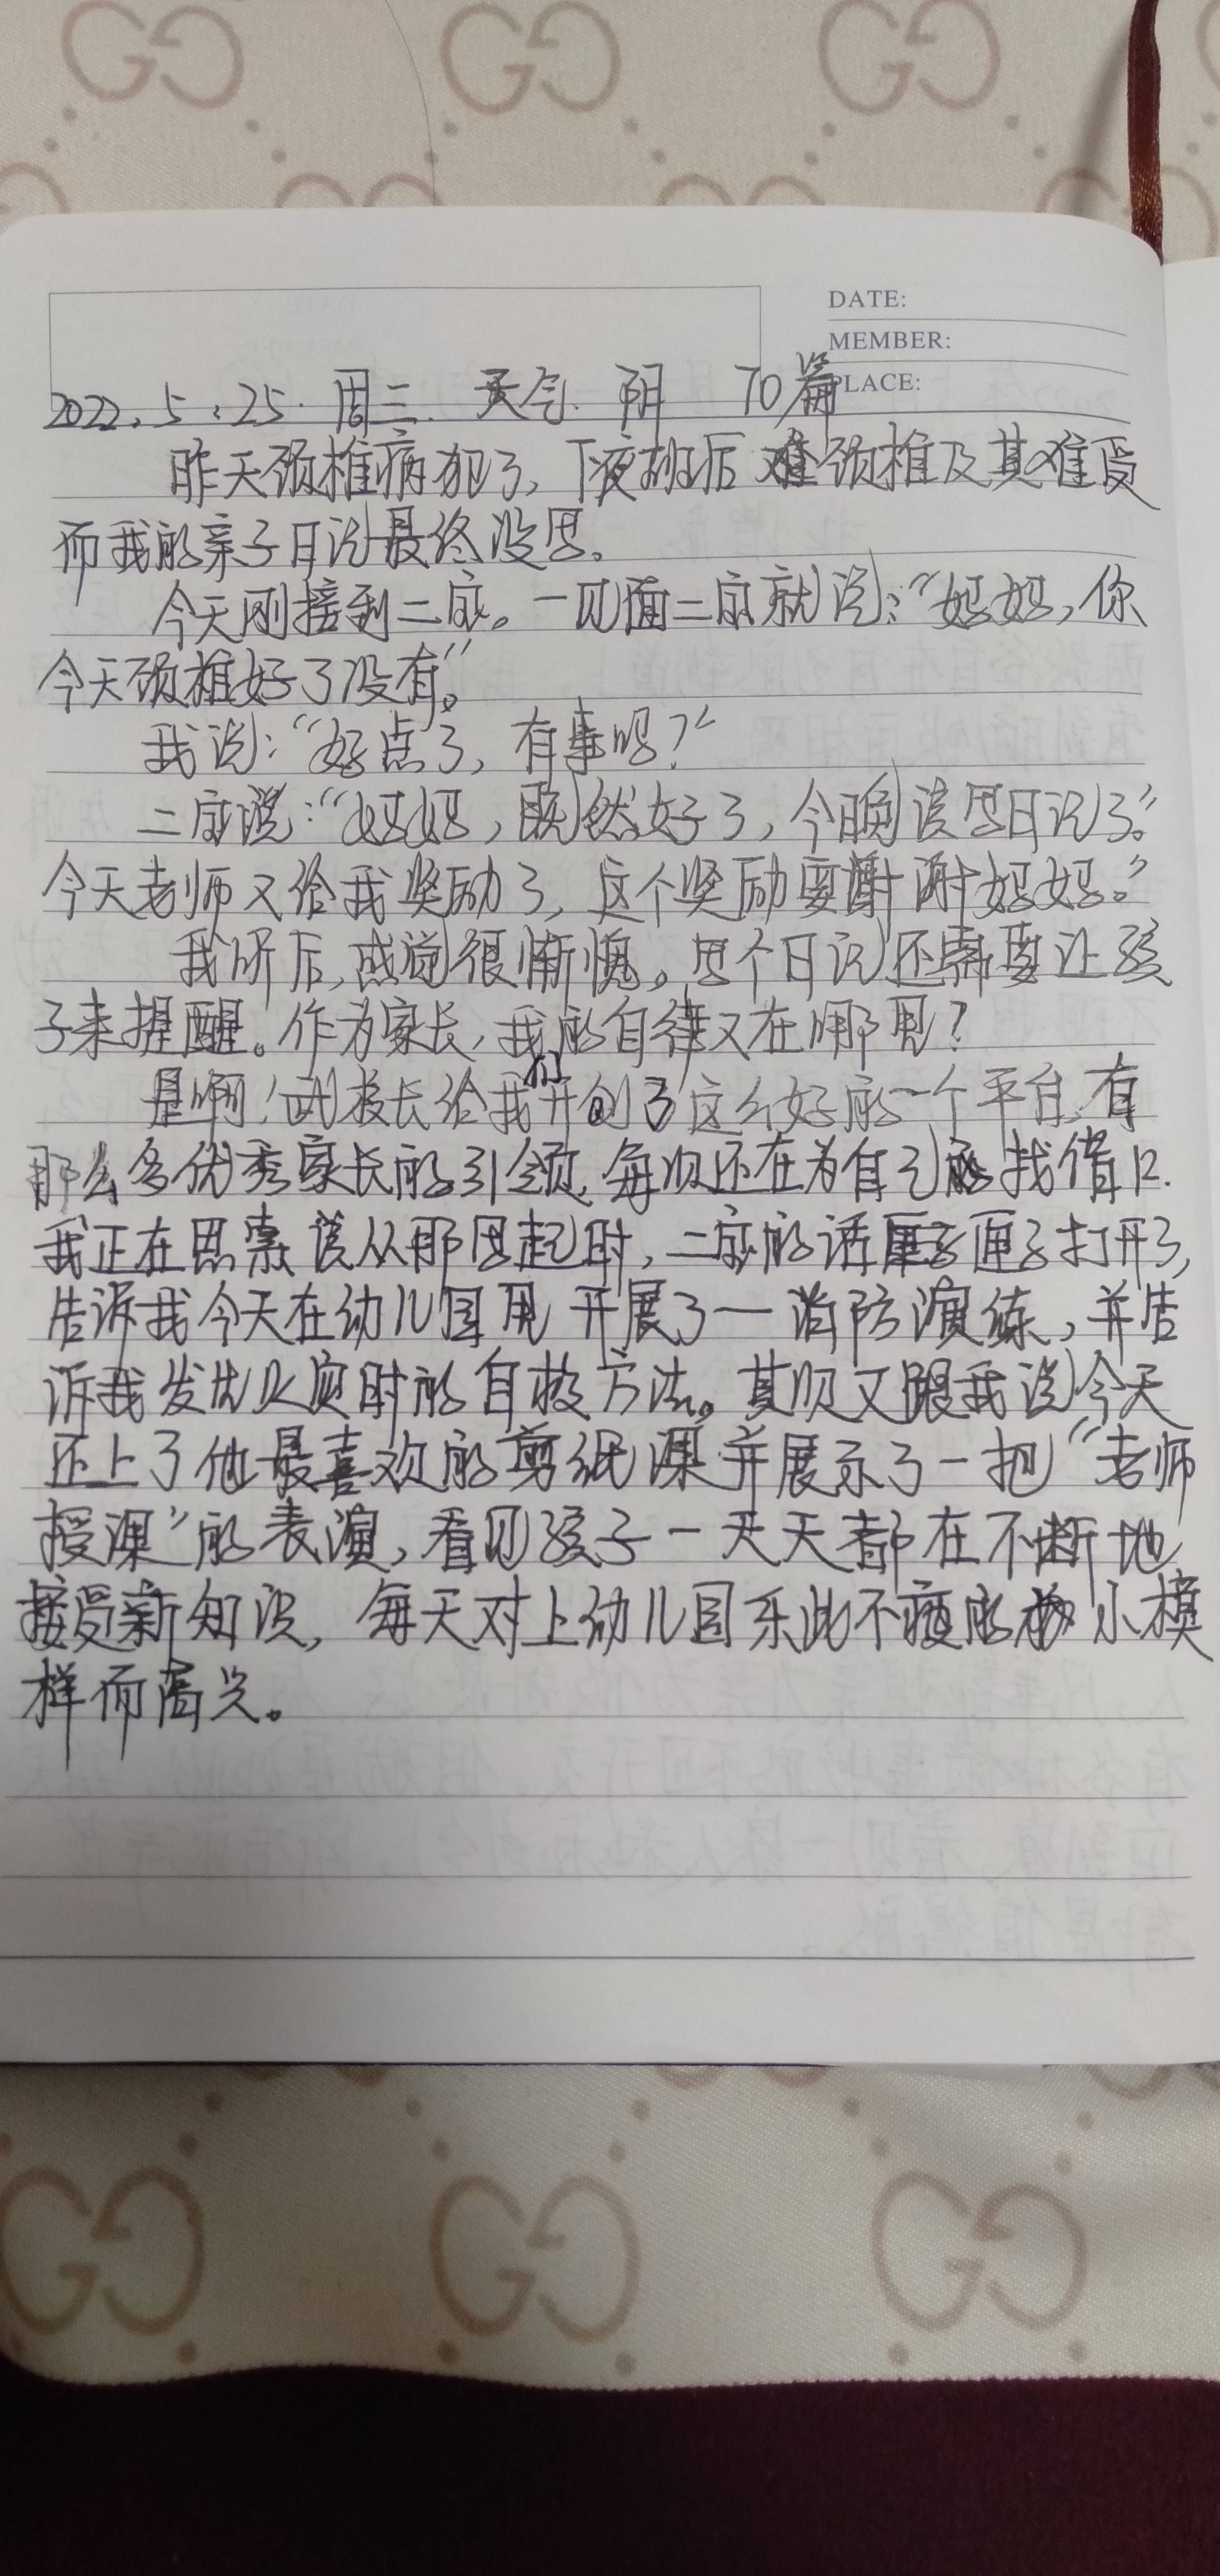 DATE:
MEMBER:
PLACE:
2022.5.25. 周三. 天气. 阴 70篇
昨天颈椎病犯了,下夜班后颈椎及其难受
而我的亲子日记最终没写。
今天刚接到二宝。一见面二宝就说:“妈妈,你
今天颈椎好了没有”。
我说:“好点了,有事吗?”
二宝说:“妈妈,既然好了,今晚该写日记了。”
今天老师又给我奖励了,这个奖励要谢谢妈妈。”
我听后,感觉很惭愧。写个日记还需要让孩
子来提醒。作为家长,我的自律又在哪里?
是啊!校长给我们开创了这么好的一个平台,有
那么多优秀家长的引领,每次还在为自己找借口.
我正在思索该从那写起时,二宝的话匣子打开了,
告诉我今天在幼儿园里开展了一消防演练,并告
诉我发生火灾时的自救方法。其次又跟我说今天
还上了他最喜欢的剪纸课并展示了一把“老师
授课”的表演,看见孩子一天天都在不断地
接受新知识,每天对上幼儿园乐此不疲的小模
样而高兴。